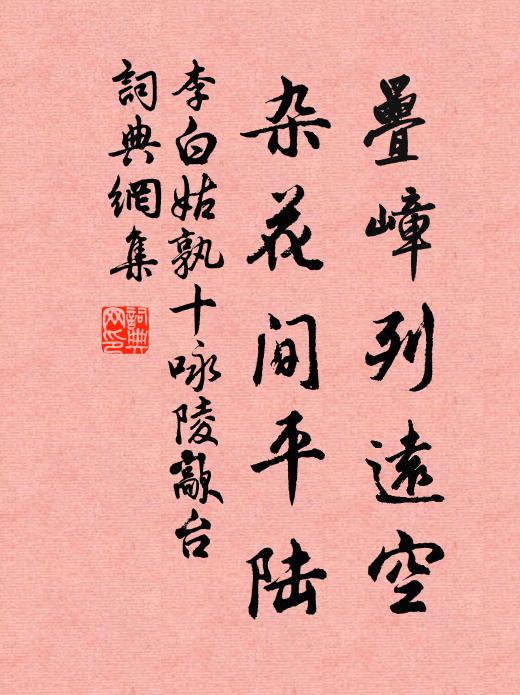 疊嶂列遠空
杂花间平陆
李白姑孰十咏陵歊台
詞典網集
詞典网印